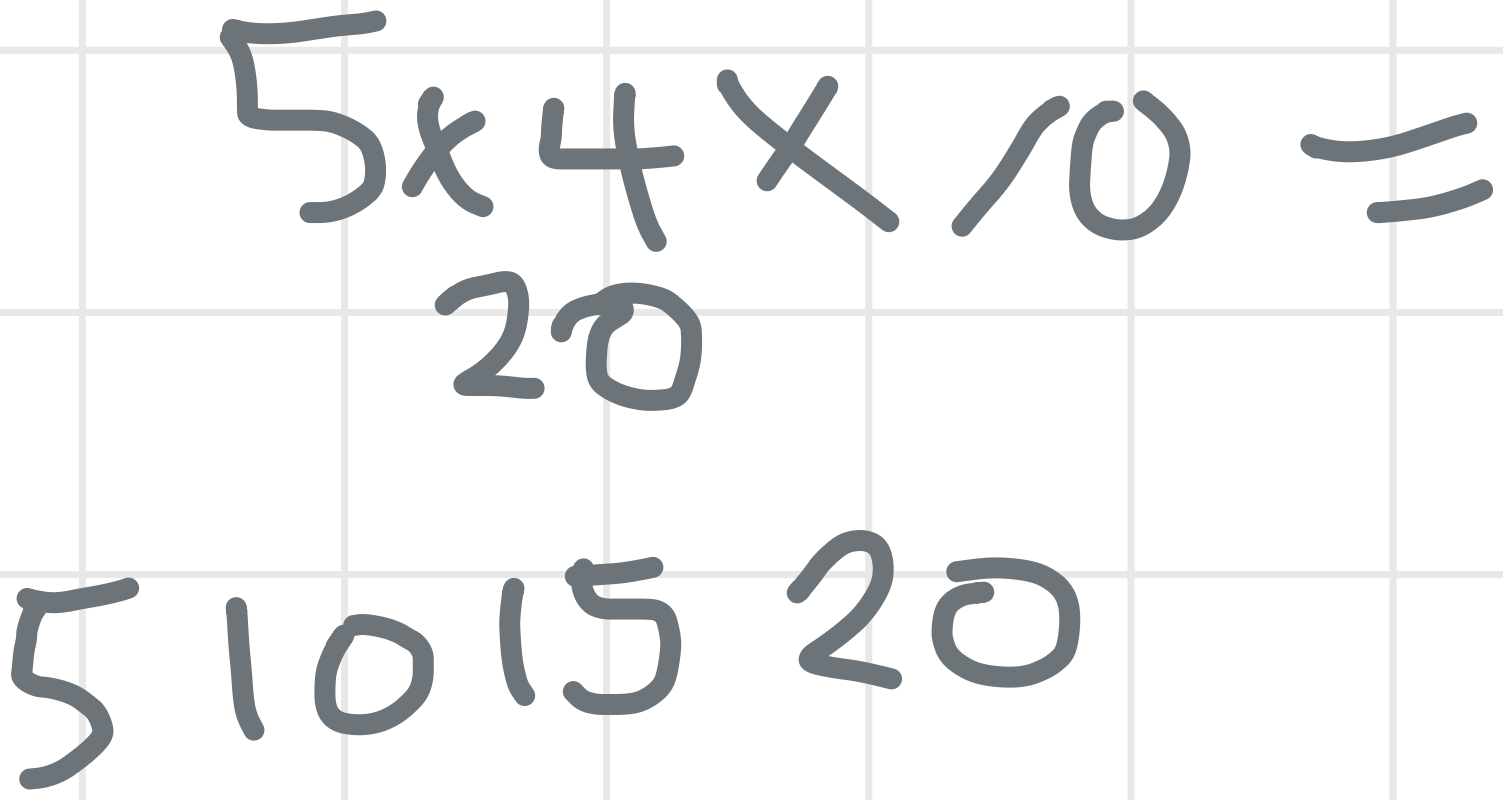 5x4x10=
20
5 10 15 20